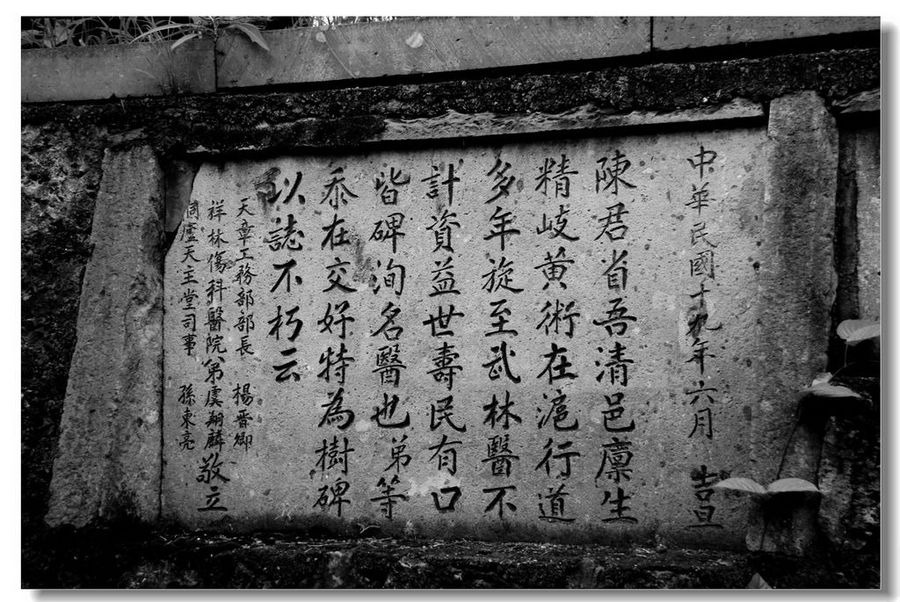 中華民國十九年六月 吉旦
陳君省吾清邑廩生
精岐黃術在滬行道
多年旋至武林醫不
計資益世壽民有口
皆碑洵名醫也弟等
忝在交好特為樹碑
以誌不朽云
天章工務部部長 楊晋卿
祥林傷科醫院弟虞翔麟敬立
同廬天主堂司事 孫東亮